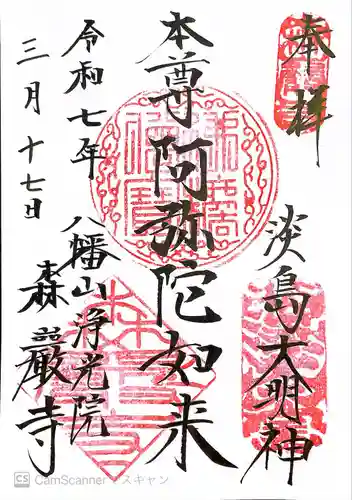 奉拝
淡島大明神
本尊阿弥陀如来
令和七年
八幡山浄光院
三月十七日
森巌寺
CS CamScanner でスキャン